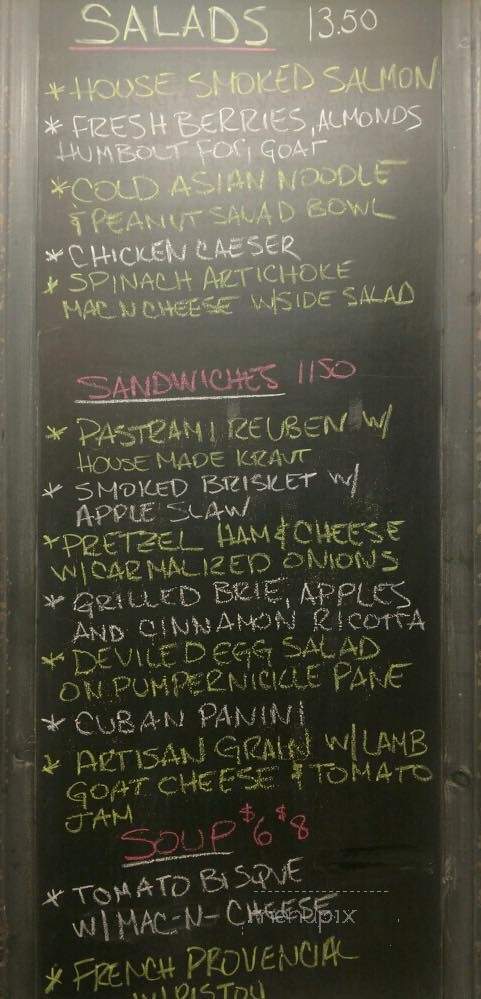 SALADS 13.50
* HOUSE SMOKED SALMON
* FRESH BERRIES, ALMONDS
HUMBOLT FOG, GOAT
* COLD ASIAN NOODLE
& PEANUT SALAD BOWL
* CHICKEN CAESER
* SPINACH ARTICHOKE
MAC N CHEESE W/SIDE SALAD
SANDWICHES 1150
* PASTRAMI REUBEN W/
HOUSE MADE KRAUT
* SMOKED BRISKET W/
APPLE SLAW
* PRETZEL HAM & CHEESE
W/CARMALIZED ONIONS
* GRILLED BRIE, APPLES
AND CINNAMON RICOTTA
* DEVILED EGG SALAD
ON PUMPERNICKLE PANE
* CUBAN PANINI
* ARTISAN GRAIN W/LAMB
GOAT CHEESE & TOMATO
JAM
SOUP $6 $8
* TOMATO BISQUE
W/MAC-N-CHEESE
menupix
* FRENCH PROVENCIAL
W/PISTOU